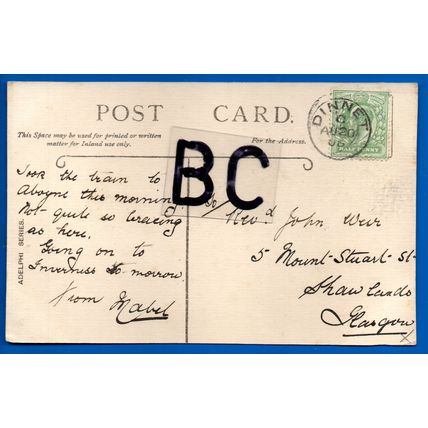 POST CARD.
This Space may be used for printed or written
matter for Inland use only.
For the Address.
BC
ADELPHI SERIES.
DINNET
AU 20
06
HALFPENNY
Took the train to
Aboyne this morning
Not quite so bracing
as here.
Going on to
Inverness to morrow
From Mabel
Revd John Weir
5 Mount-Stuart-St
Shawlands
Glasgow